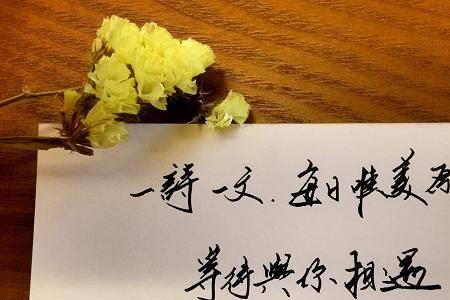 一詩一文.每日惟美原
等待與你相遇